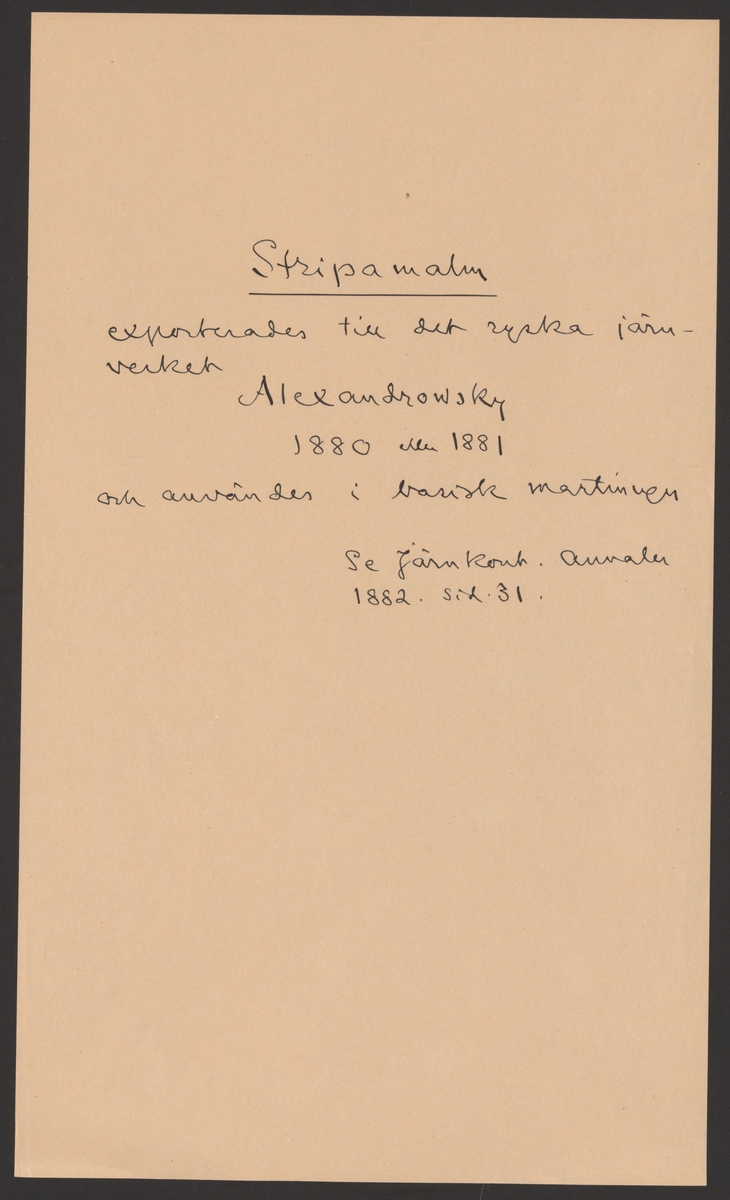 Stripamalm
exporterades till det ryska järn-
verket
Alexandrowsky
1880 eller 1881
och användes i basisk martinugn
Se Järnkont. Annaler
1882. sid. 31.